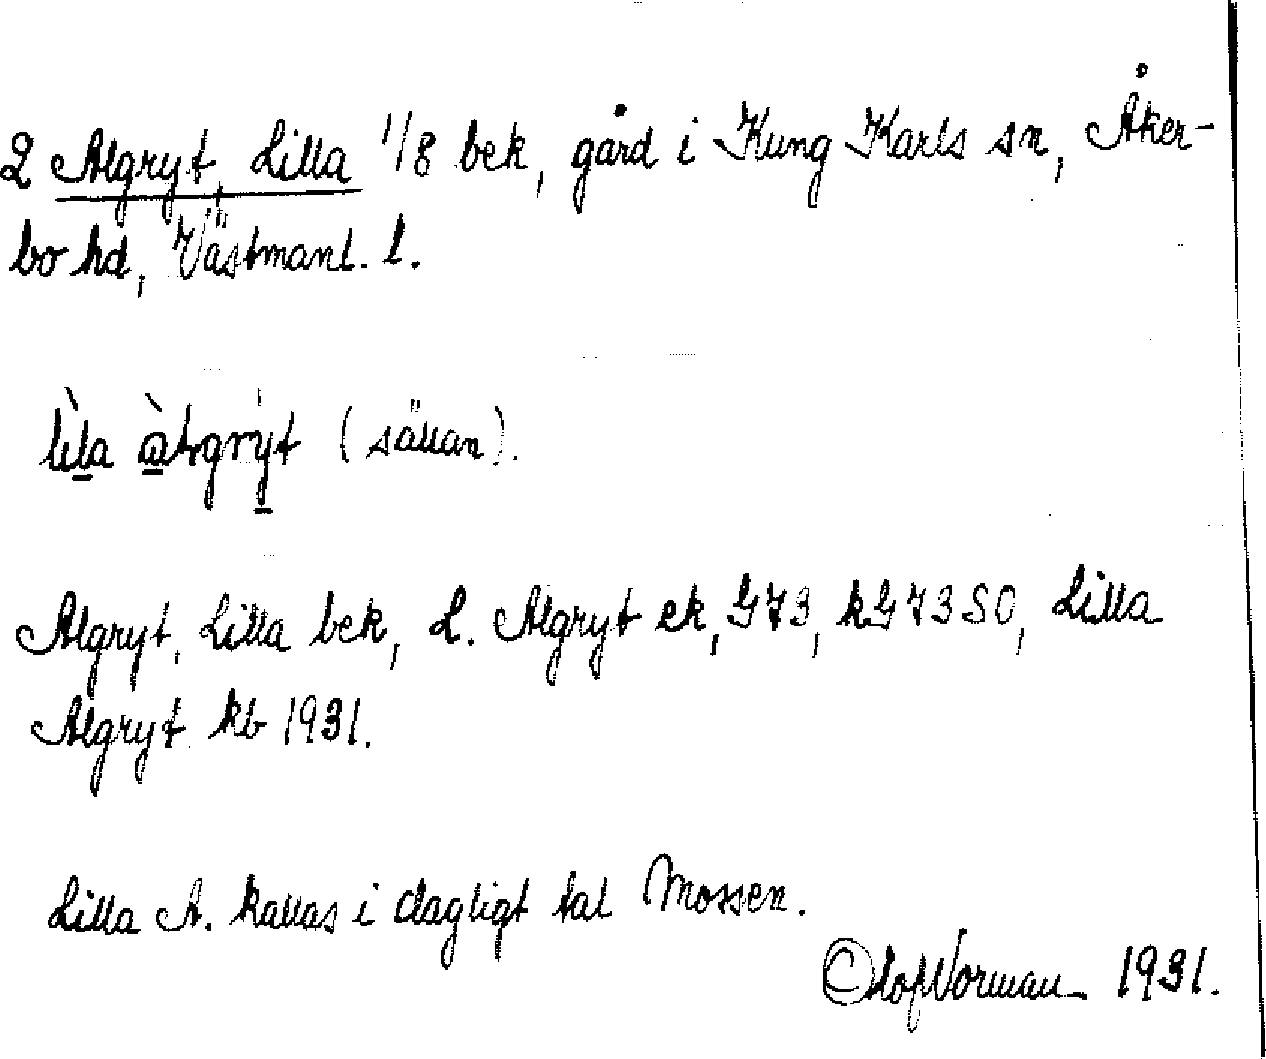 2 Algryt, Lilla 1/8 bek, gård i Kung Karls sn, Åker-
bo hd, Västmanl. l.
(sällan).
Algryt, Lilla bek, L. Algryt ek, G73, kG73SO, Lilla
Algryt kb 1931.
Lilla A. kallas i dagligt tal Mossen.
Olof Norman 1931.